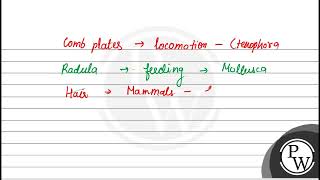 Comb plates → locomotion - Ctenophora
Radula → feeding → Mollusca
Hair → Mammals -
PW